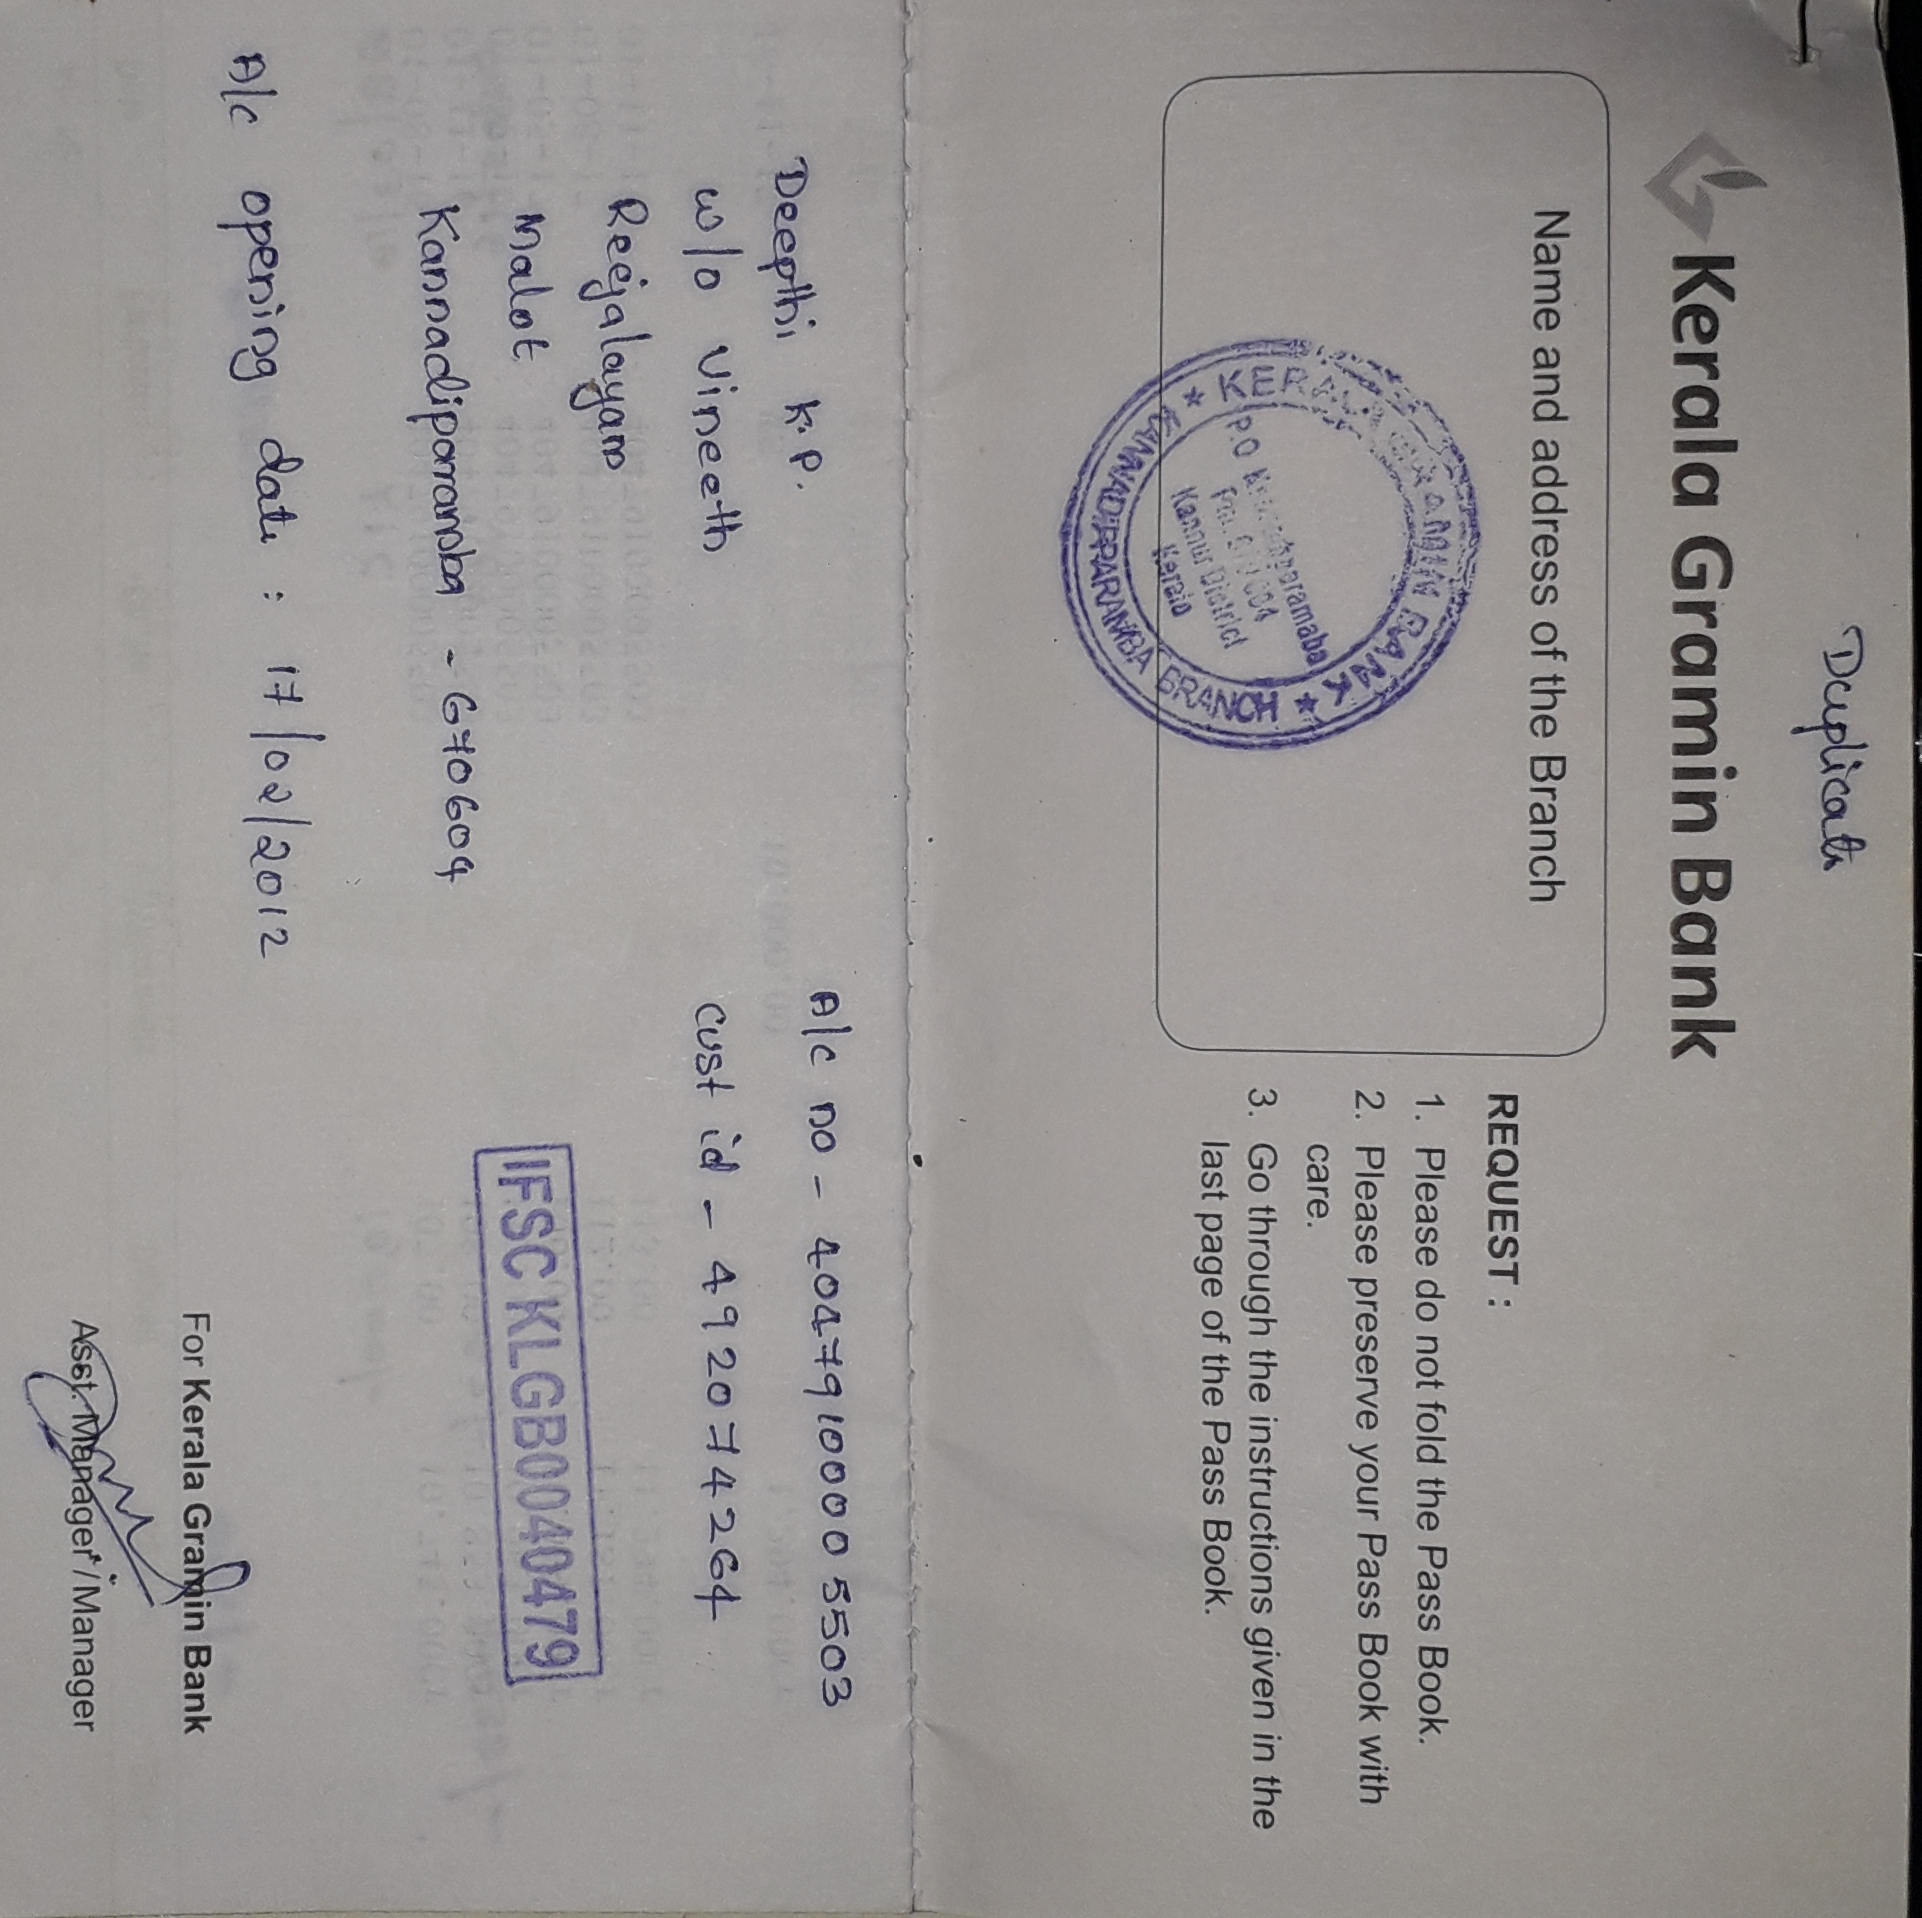 Duplicate
Kerala Gramin Bank
Name and address of the Branch
★ KERALA GRAMIN BANK ★
KANNADIPARAMBA BRANCH
P.O
Kannur District
Kerala
REQUEST :
1. Please do not fold the Pass Book.
2. Please preserve your Pass Book with
care.
3. Go through the instructions given in the
last page of the Pass Book.
Deepthi K.P.
W/o Vineeth
Reejalayam
Malot
Kannadiparamba - 670604
A/c no - 40479100005503
Cust id - 492074264
IFSC KLGB0040479
A/c opening date : 17/02/2012
For Kerala Gramin Bank
Asst. Manager / Manager